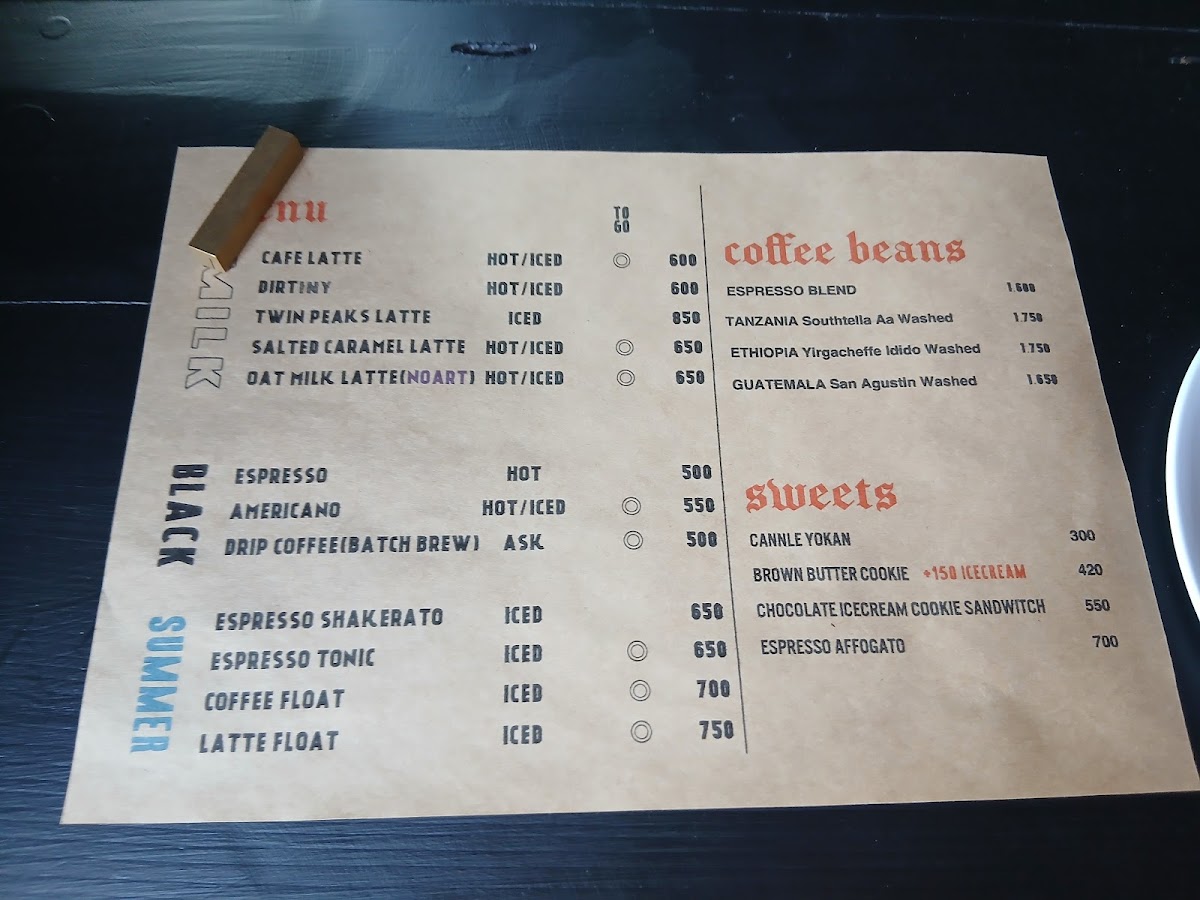 enu
TO GO
MILK
CAFE LATTE HOT/ICED ◎ 600
DIRTINY HOT/ICED 600
TWIN PEAKS LATTE ICED 850
SALTED CARAMEL LATTE HOT/ICED ◎ 650
OAT MILK LATTE(NOART) HOT/ICED ◎ 650
BLACK
ESPRESSO HOT 500
AMERICANO HOT/ICED ◎ 550
DRIP COFFEE(BATCH BREW) ASK ◎ 500
SUMMER
ESPRESSO SHAKERATO ICED 650
ESPRESSO TONIC ICED ◎ 650
COFFEE FLOAT ICED ◎ 700
LATTE FLOAT ICED ◎ 750
coffee beans
ESPRESSO BLEND 1.600
TANZANIA Southtella Aa Washed 1.750
ETHIOPIA Yirgacheffe Idido Washed 1.750
GUATEMALA San Agustin Washed 1.650
sweets
CANNLE YOKAN 300
BROWN BUTTER COOKIE +150 ICECREAM 420
CHOCOLATE ICECREAM COOKIE SANDWITCH 550
ESPRESSO AFFOGATO 700